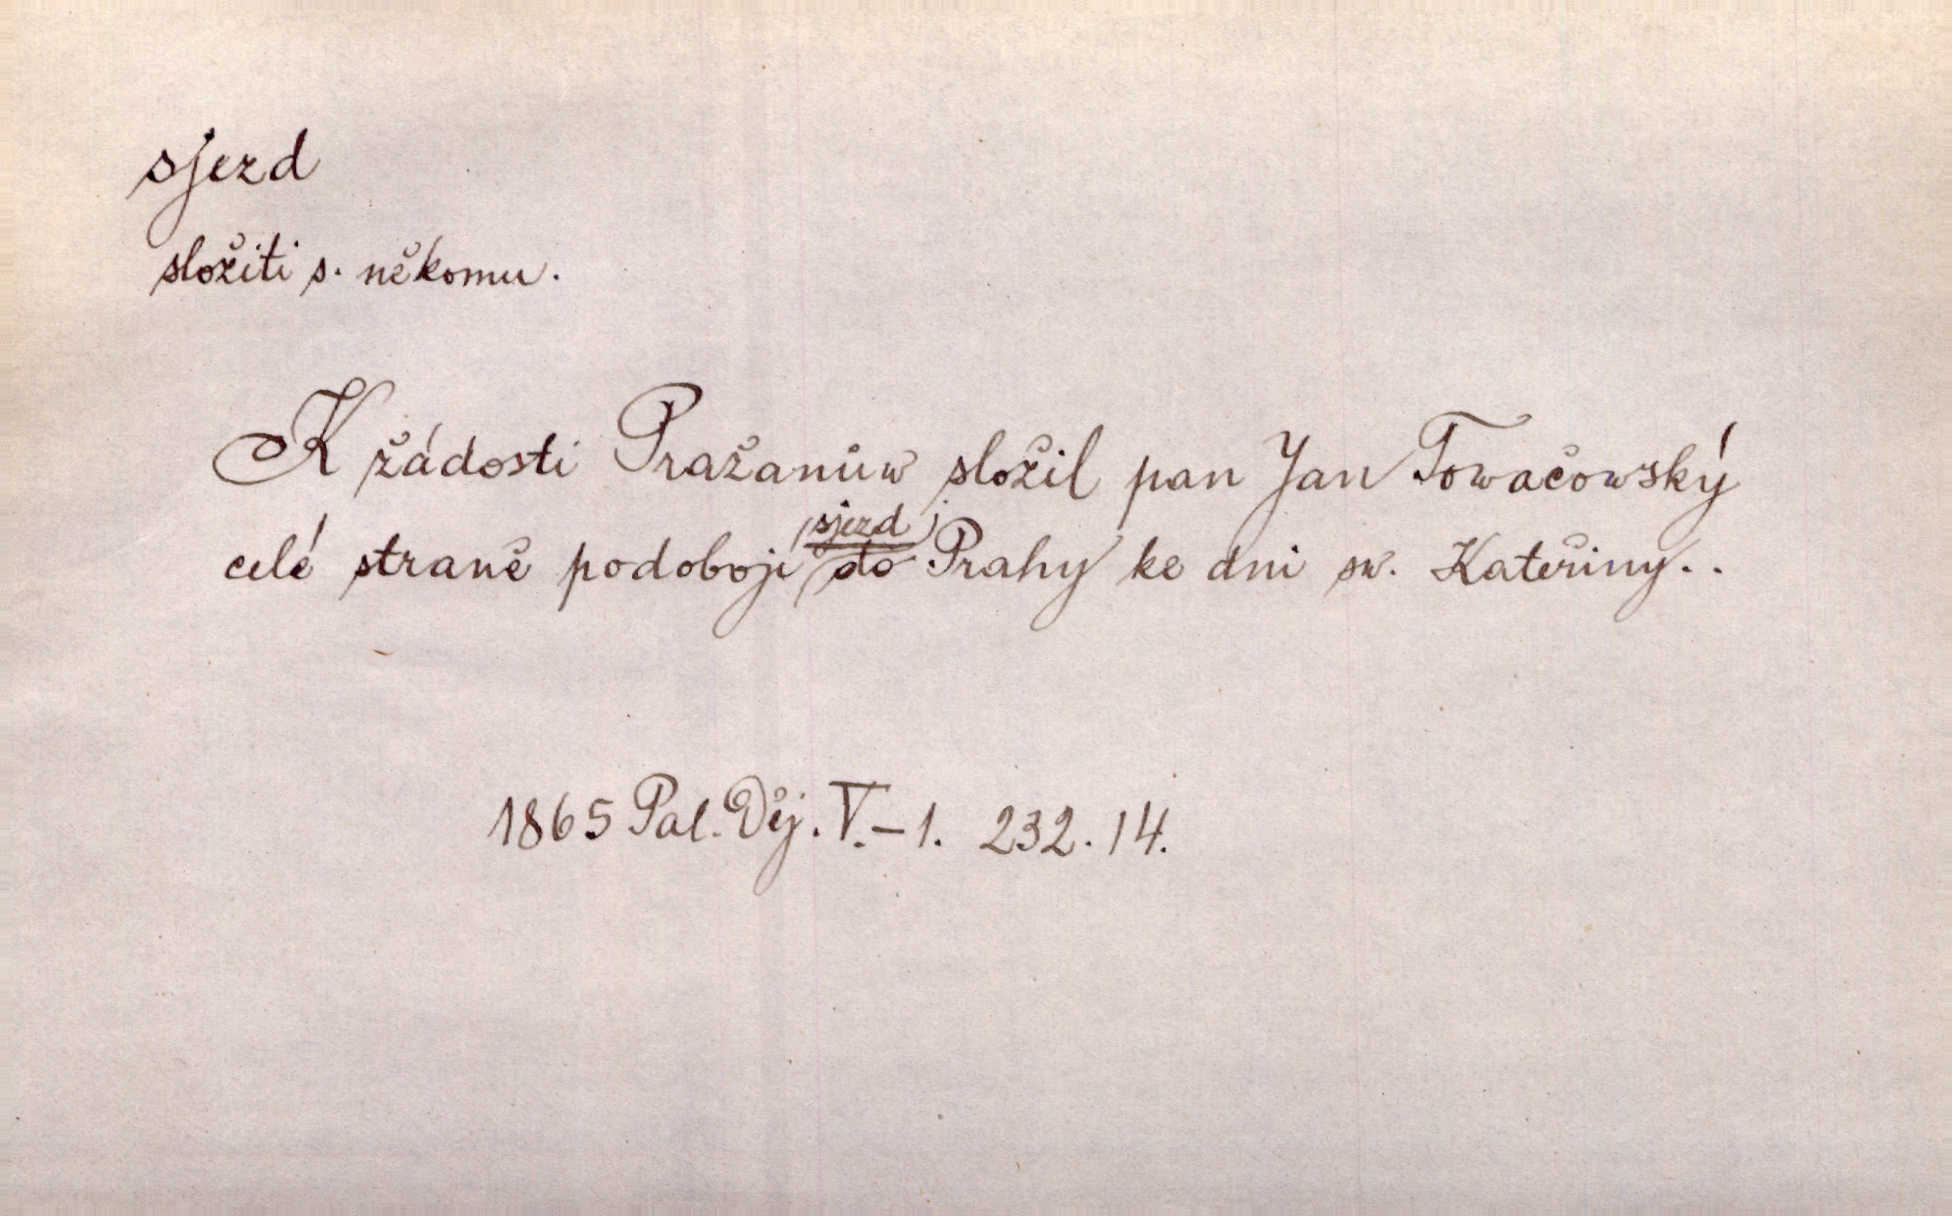 sjezd
složiti s. někomu.
K žádosti Pražanůw složil pan Jan Towačowský
celé straně podobojí sjezd do Prahy ke dni sw. Kateřiny..
1865 Pal. Děj. V.–1. 232. 14.